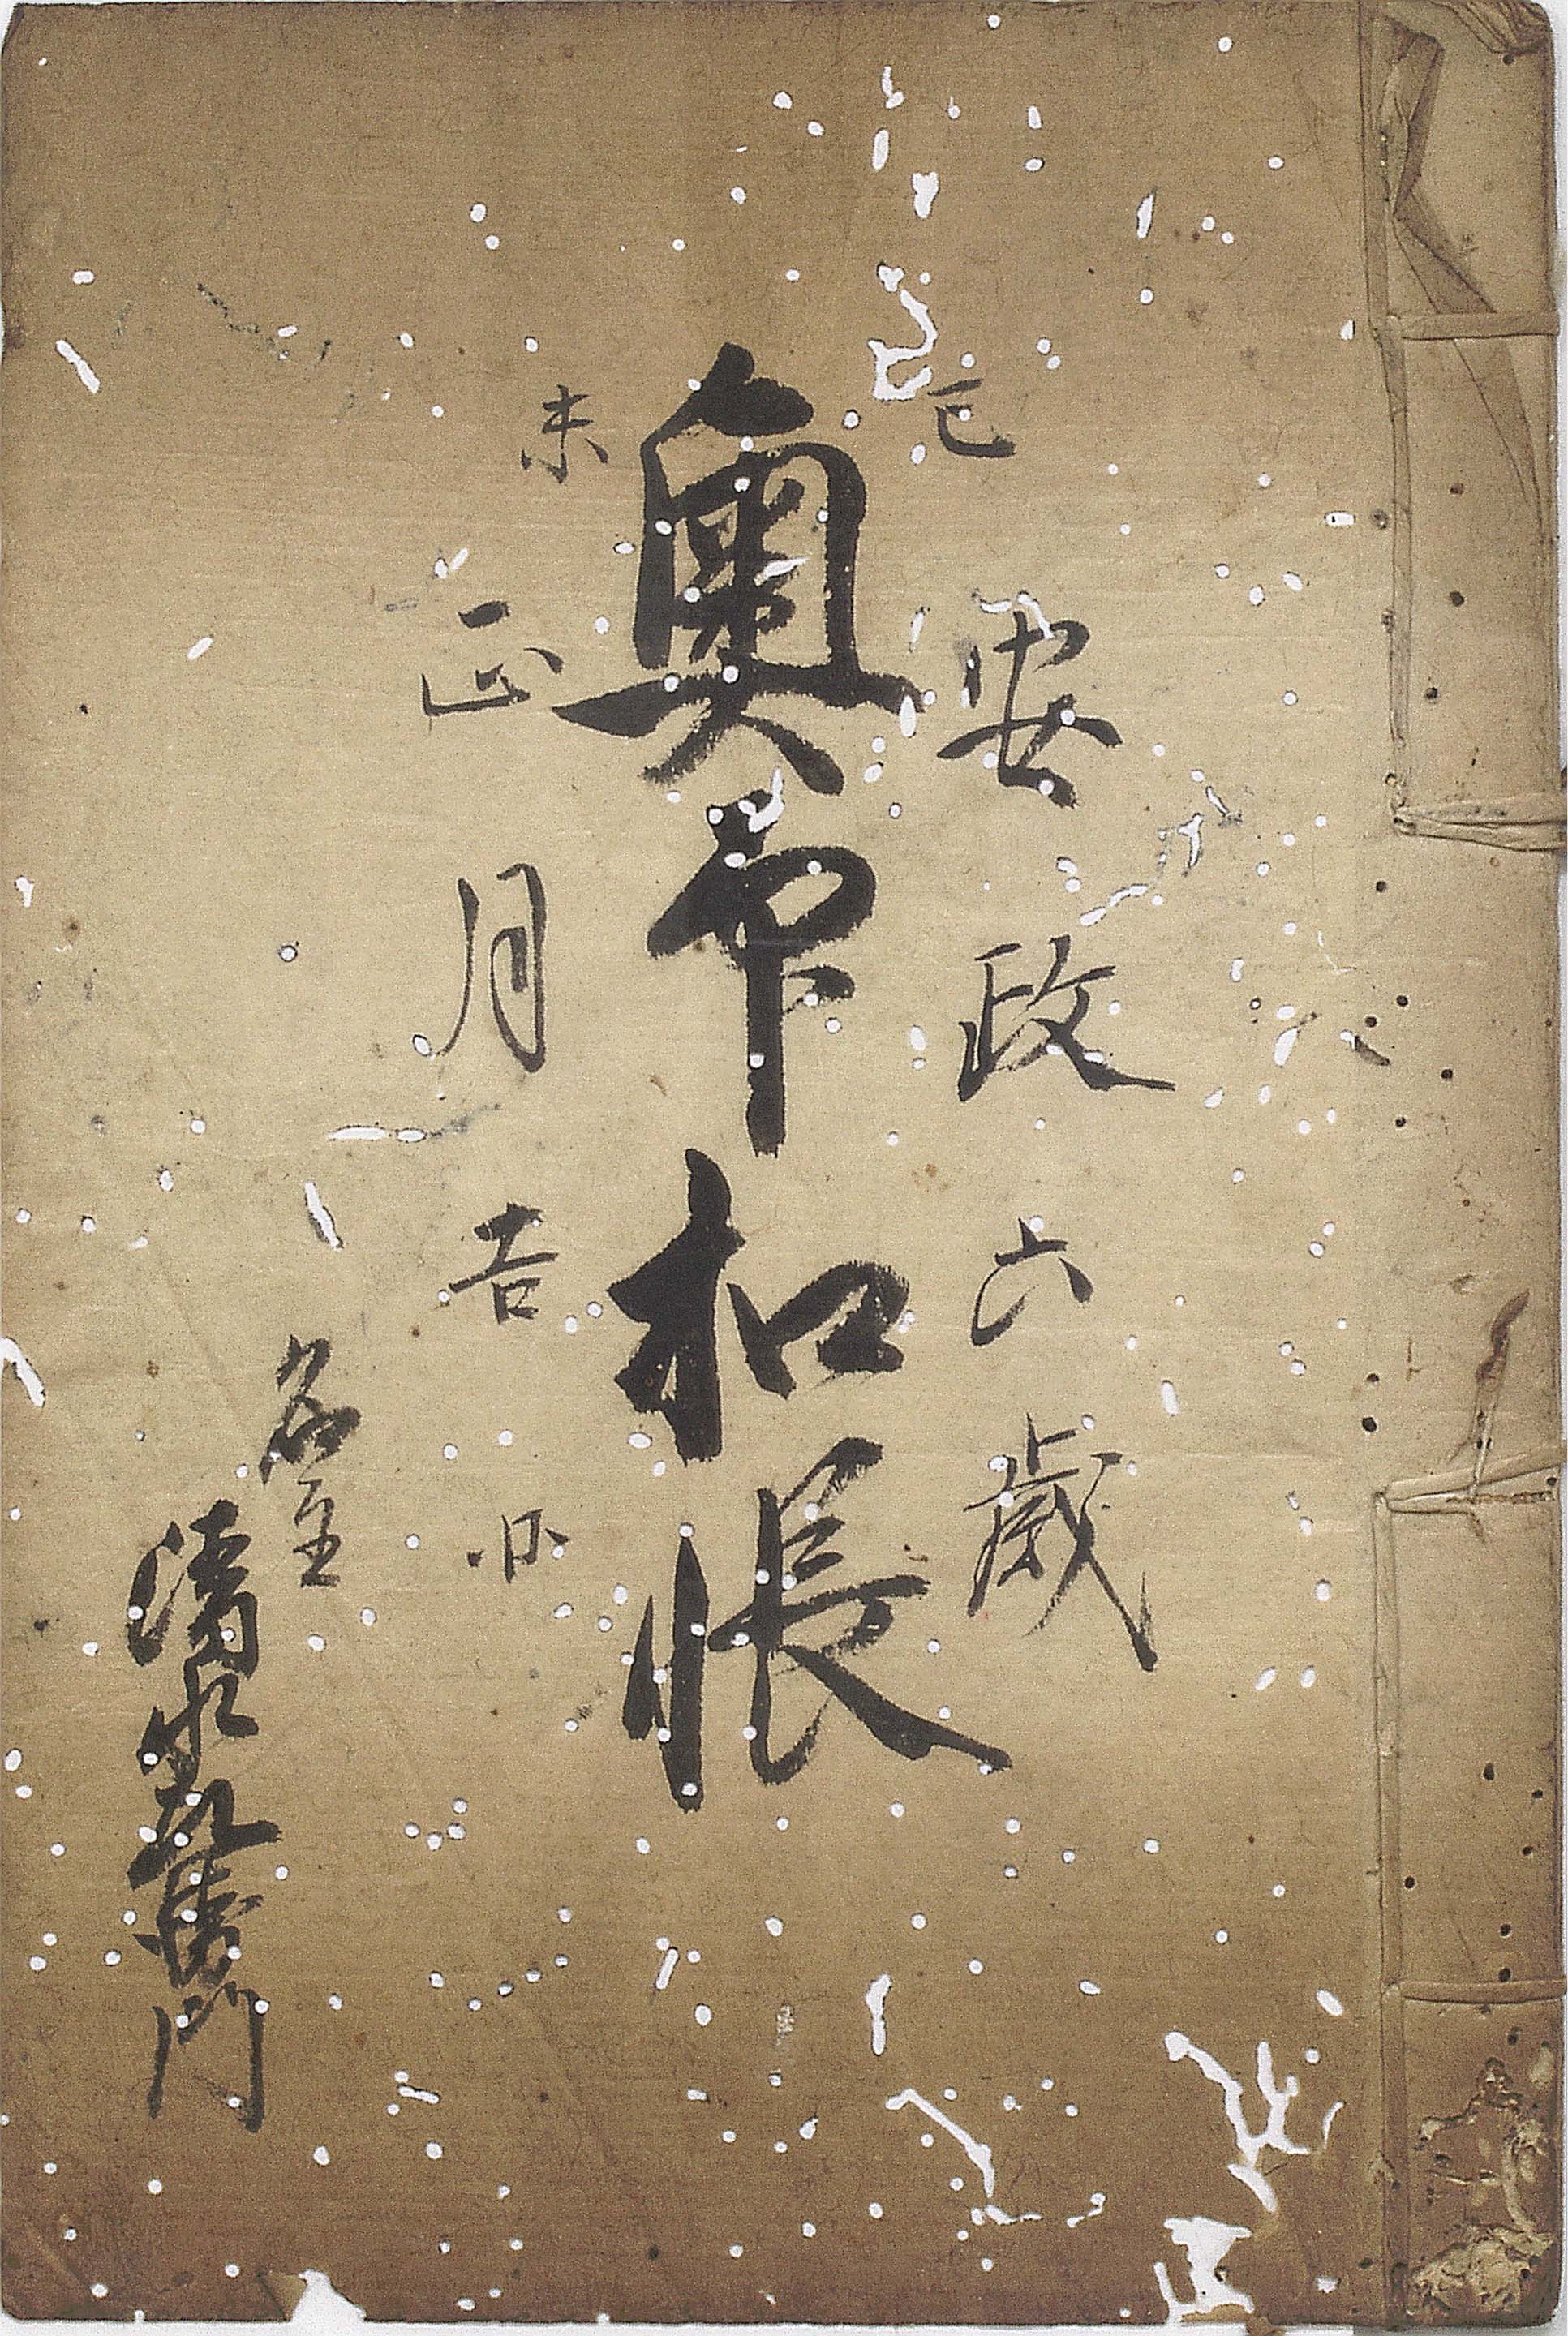 己 安政六歳
奥印扣帳
未 正月吉日
名主
清水 門